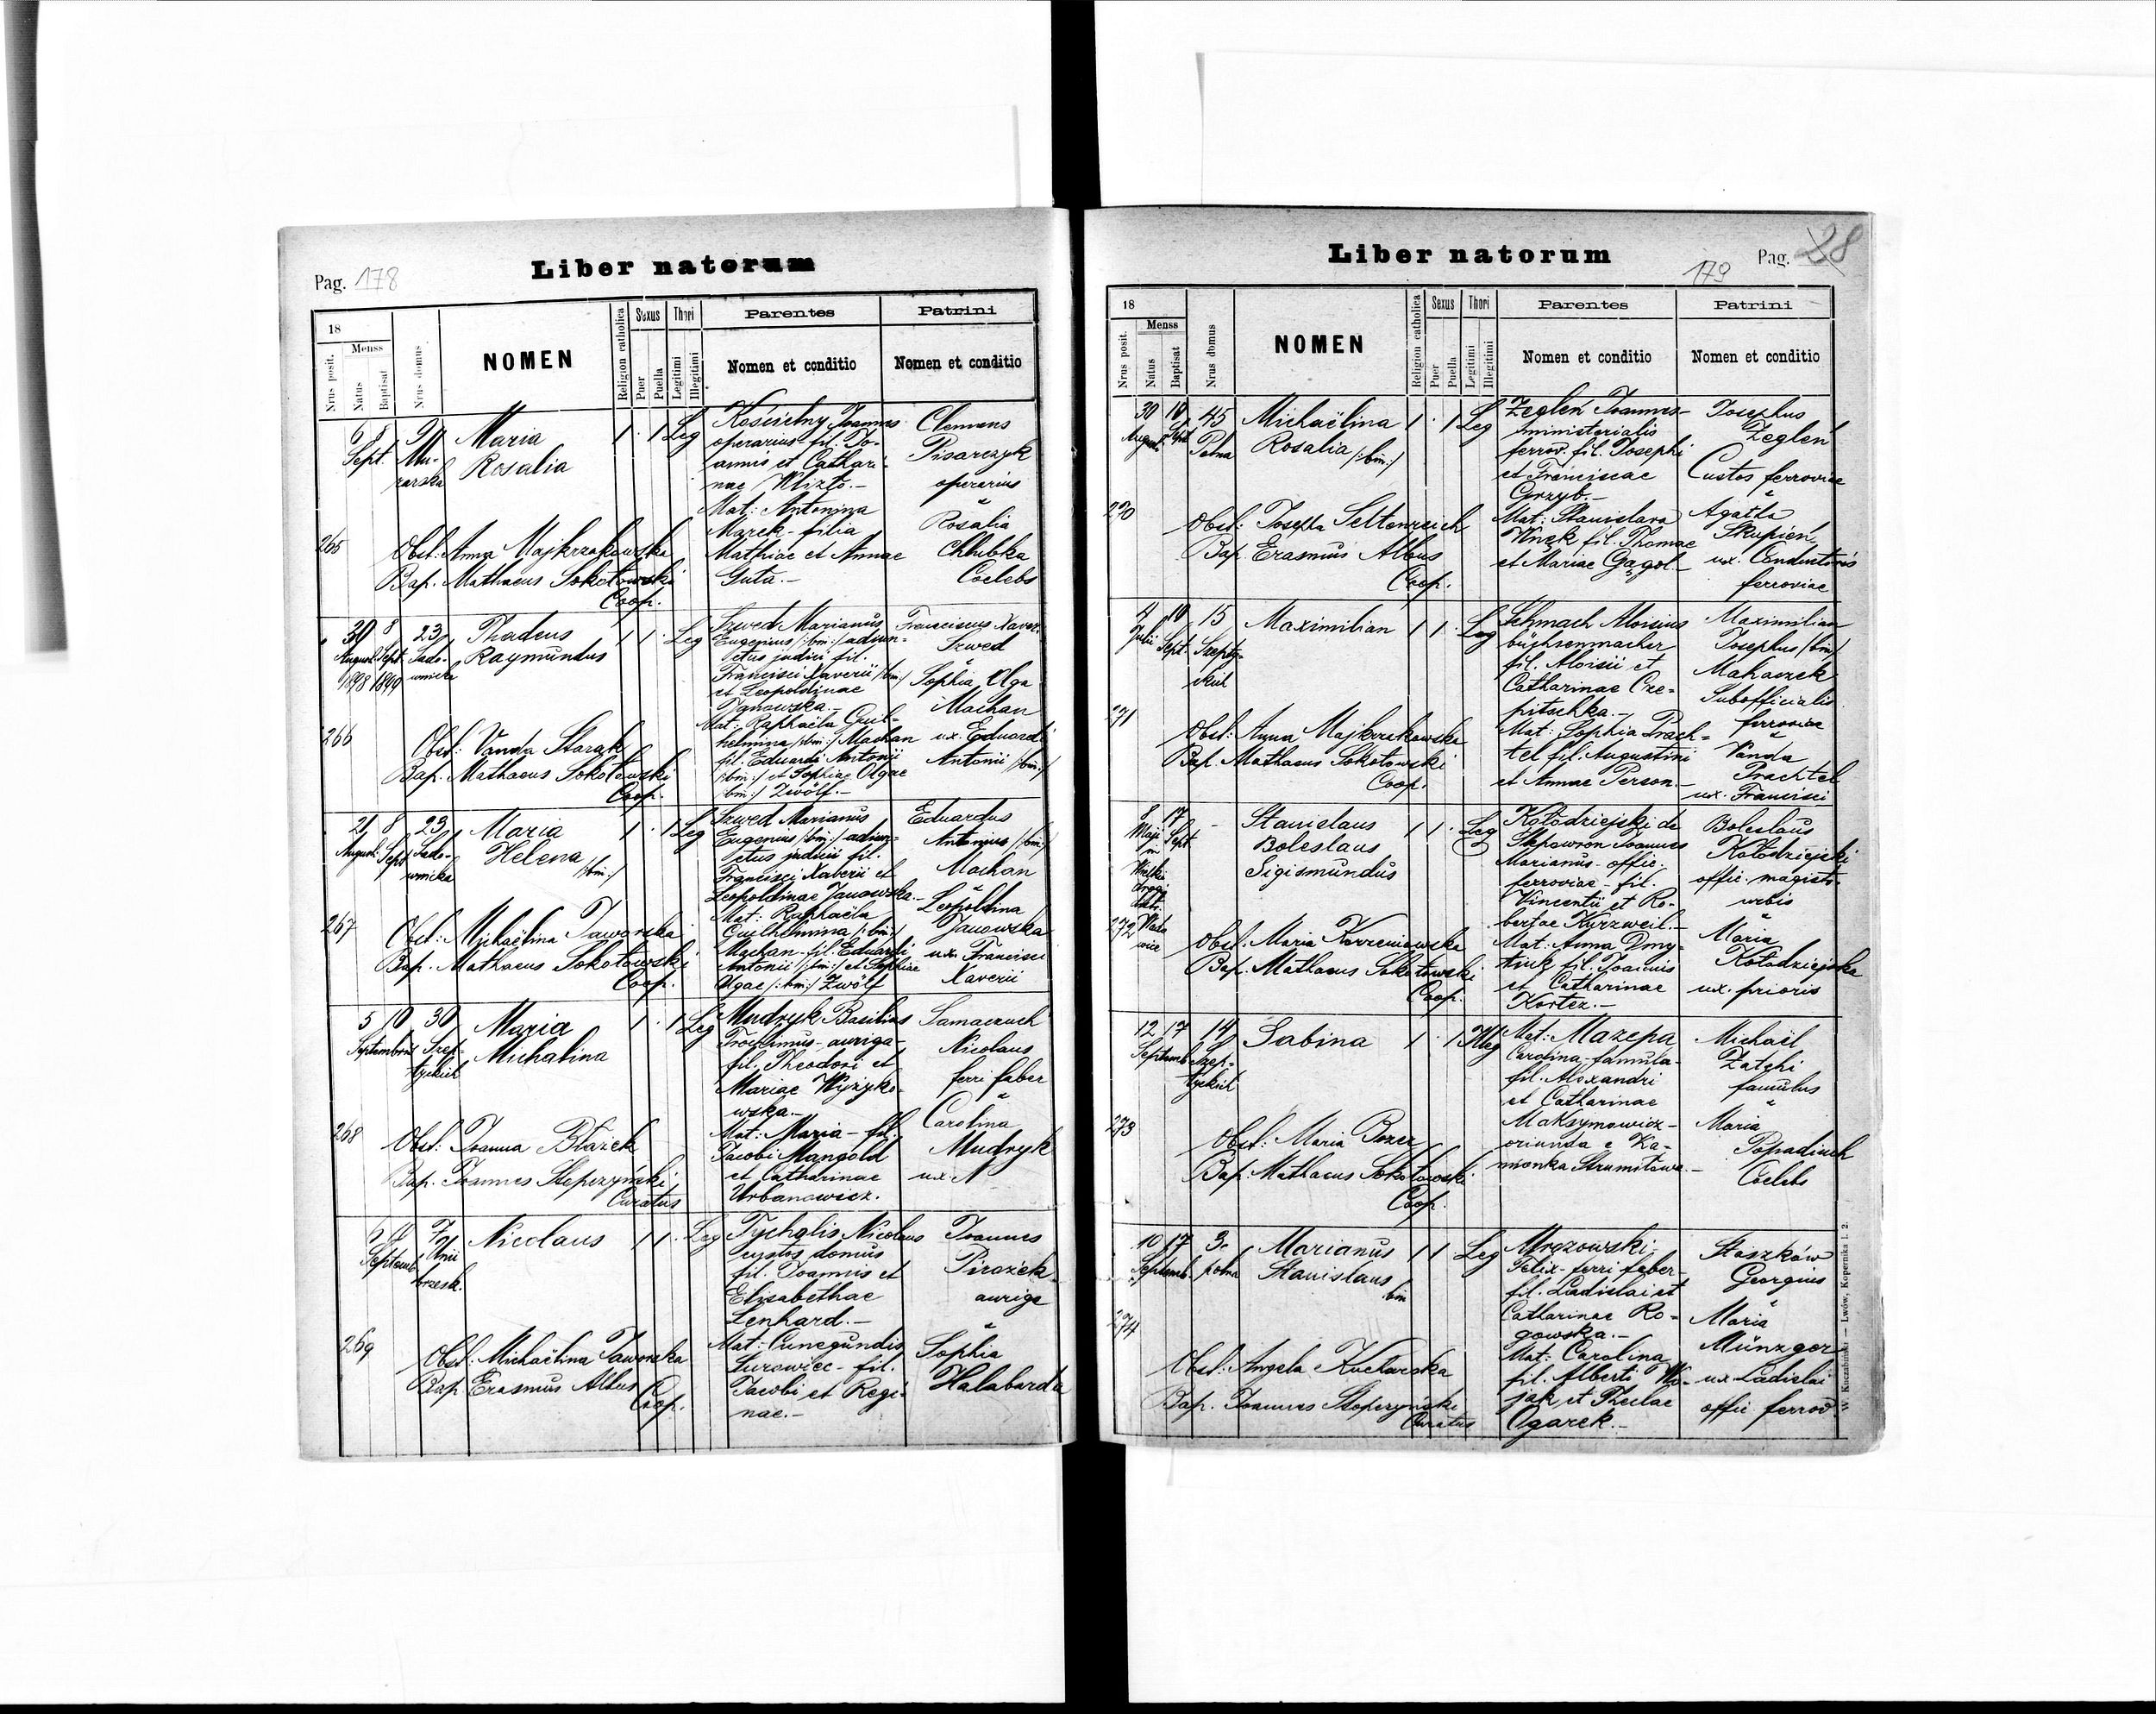 Pag. 178
Liber natorum
18
Nrus posit.
Menss
Natus
Baptisat
Nrus domus
NOMEN
Religion catholica
Sexus
Puer
Puella
Thori
Legitimi
Illegitimi
Parentes
Nomen et conditio
Patrini
Nomen et conditio
265
6 8
Sept.
Mu-
rarska
Maria
Rosalia
1 . 1 Leg
Kościelny Joannes
operarius fil. Jo-
annis et Cathari-
nae Klizto.-
Mat: Antonina
Marek - filia
Mathiae et Annae
Guta.-
Clemens
Pisarczyk
operarius
Rosalia
Chlubka
Coelebs
Obst: Anna Majkrzakowska
Bap. Mathaeus Sokołowski
Coop.
266
30 8
August Sept
1898 1899
23
Sado-
wnicka
Thadeus
Raymundus
1 1 . Leg
Szwed Marianus
Eugenius /:bin:/ adiun-
ctus judici fil.
Francisci Xaverii /:bin:/
et Leopoldinae
Janowska.-
Mat: Raphaela Guil-
helmina /:bin:/ Machan
fil. Eduardi Antonii
/:bin:/ et Sophiae Olgae
/:bin:/ Zwölf.-
Franciscus Xaver.
Szwed
Sophia Olga
Machan
ux. Eduardi
Antonii /:bin:/
Obst: Vanda Starak
Bap. Mathaeus Sokołowski
Coop.
267
21 8
August. Sept
23
Sado-
wnicka
Maria
Helena /:bin:/
1 . 1 Leg
Szwed Marianus
Eugenius /:bin:/ adiun-
ctus judicii fil.
Francisci Xaverii et
Leopoldinae Janowska.-
Mat: Raphaëla
Guilhelmina /:bin:/
Machan - fil. Eduardi
Antonii /:bin:/ et Sophiae
Olgae /:bin:/ Zwölf
Eduardus
Antonius /:bin:/
Machan
Leopoldina
Janowska
ux. Francisci
Xaverii
Obst: Michaëlina Jaworska
Bap. Mathaeus Sokołowski
Coop.
268
5 10
Septembris
30
Szep-
tyckich
Maria
Michalina
1 . 1 Leg
Mudryk Basilius
Trochimus - auriga -
fil. Theodori et
Mariae Wyżyko-
wska.-
Mat: Maria - fil.
Jacobi Mangold
et Catharinae
Urbanowicz.
Samaczuch
Nicolaus
ferri faber
Carolina
Mudryk
ux. N
Obst: Joanna Błażek
Bap. Joannes Stepczyński
Curatus
269
Septemb.
7
Unii
brzesk.
Nicolaus
1 1 . Leg
Tycholis Nicolaus
custos domus
fil. Joannis et
Elisabethae
Lenhard.-
Mat: Cunegundis
Surowiec - fil.
Jacobi et Regi-
nae.-
Joannes
Pirożek
auriga
Sophia
Halabarda
Obst: Michaëlina Jaworska
Bap. Erasmus Albus
Coop.
Liber natorum
179
Pag. 28
18
Nrus posit.
Menss
Natus
Baptisat
Nrus domus
NOMEN
Religion catholica
Sexus
Puer
Puella
Thori
Legitimi
Illegitimi
Parentes
Nomen et conditio
Patrini
Nomen et conditio
270
30 10
August. Sept.
45
Polna
Michaëlina
Rosalia /:bin:/
1 . 1 Leg
Zegleń Joannes -
ministerialis
ferrov. fil. Josephi
et Franciscae
Grzyb.-
Mat: Stanislava
Wnęk fil. Thomae
et Mariae Gągol.-
Josephus
Zegleń
Custos ferroviae
Agatha
Skupień
ux. Conductoris
ferroviae
Obst: Josepha Seltenreich
Bap. Erasmus Albus
Coop.
271
4 10
Julii Sept.
15
Szepty-
ckich
Maximilian
1 1 . Leg
Schmach Aloisius
büchsenmacher
fil. Aloisii et
Catharinae Cze-
pitschka.-
Mat: Sophia Prach-
tel fil. Augustini
et Annae Person.-
Maximilian
Josephus /:bin:/
Mahaczek
Subofficialis
ferroviae
Vanda
Prachtel
ux. Francisci
Obst: Anna Majkrzakowska
Bap. Mathaeus Sokołowski
Coop.
272
8 17
Maji Sept
Stanislaus
Boleslaus
Sigismundus
1 1 . Leg
Kołodziejski de
Skpowron Joannes
Marianus - offic.
ferroviae - fil.
Vincentii et Ro-
bertae Kurzweil.-
Mat: Anna Dmy-
tiuk fil. Joannis
et Catharinae
Kortez.-
Boleslaus
Kołodziejski
offic. magistr.
urbis
Maria
Kołodziejska
ux. prioris
Obst. Maria Korzeniowska
Bap. Mathaeus Sokołowski
Coop.
273
12 17
Septemb.
14
Szep-
tyckich
Sabina
1 . 1 Illeg
Mat: Mazepa
Carolina - famula -
fil. Alexandri
et Catharinae
Maksymowicz -
oriunda e Ka-
mionka Strumiłowa.-
Michaël
Zatchi
famulus
Maria
Popadiuch
Coelebs
Obst: Maria Bozer
Bap. Mathaeus Sokołowski
Coop.
274
10 17
Septemb.
3.
polna
Marianus
Stanislaus
bin
1 1 Leg
Mrozowski
Felix - ferri faber -
fil. Ladislai et
Catharinae Ro-
gowska.-
Mat: Carolina
fil. Alberti Wo-
jak et Theclae
Ogarek.-
Staszków
Georgius
Maria
Münzger
ux Ladislai
offic ferrov.
Obst: Angela Kucharska
Bap. Joannes Stopczyński
Curatus
W. Kuczabiński — Lwów, Kopernika l. 2.